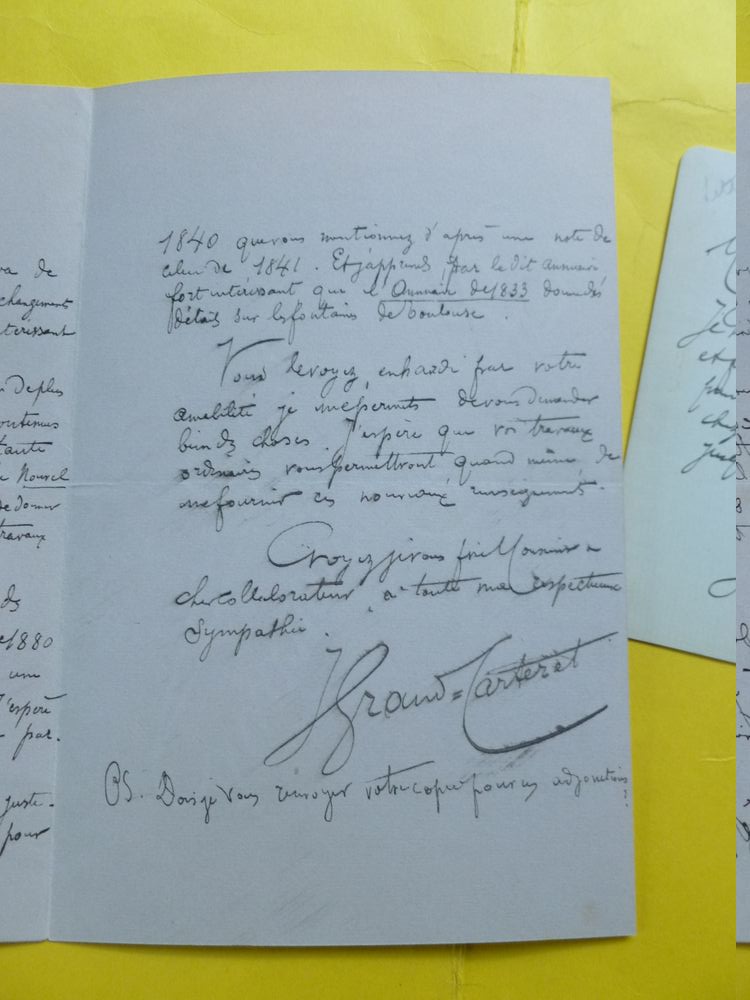 va de
changements
intéressant
De plus
contenues
tante
Nouvel
de donner
travaux
ds
1880
une
J'espère
par.
juste-
pour
1840 que vous mentionnez d'après une note de
celui de 1841. Et j'apprends, par le dit annuaire
fort intéressant que l'Annuaire de 1833 donne ds
détails sur les fontaines de Toulouse.
Vous le voyez, enhardi par votre
amabilité je me permets de vous demander
bien ds choses. J'espère que vos travaux
ordinaires vous permettront quand même, de
me fournir ces nouveaux renseignements.
Croyez je vous prie Monsieur &
cher collaborateur, à toute ma respectueuse
Sympathie.
J Grand=Carteret
PS. Dois-je vous renvoyer votre copie pour ces adjonctions?
Je
et